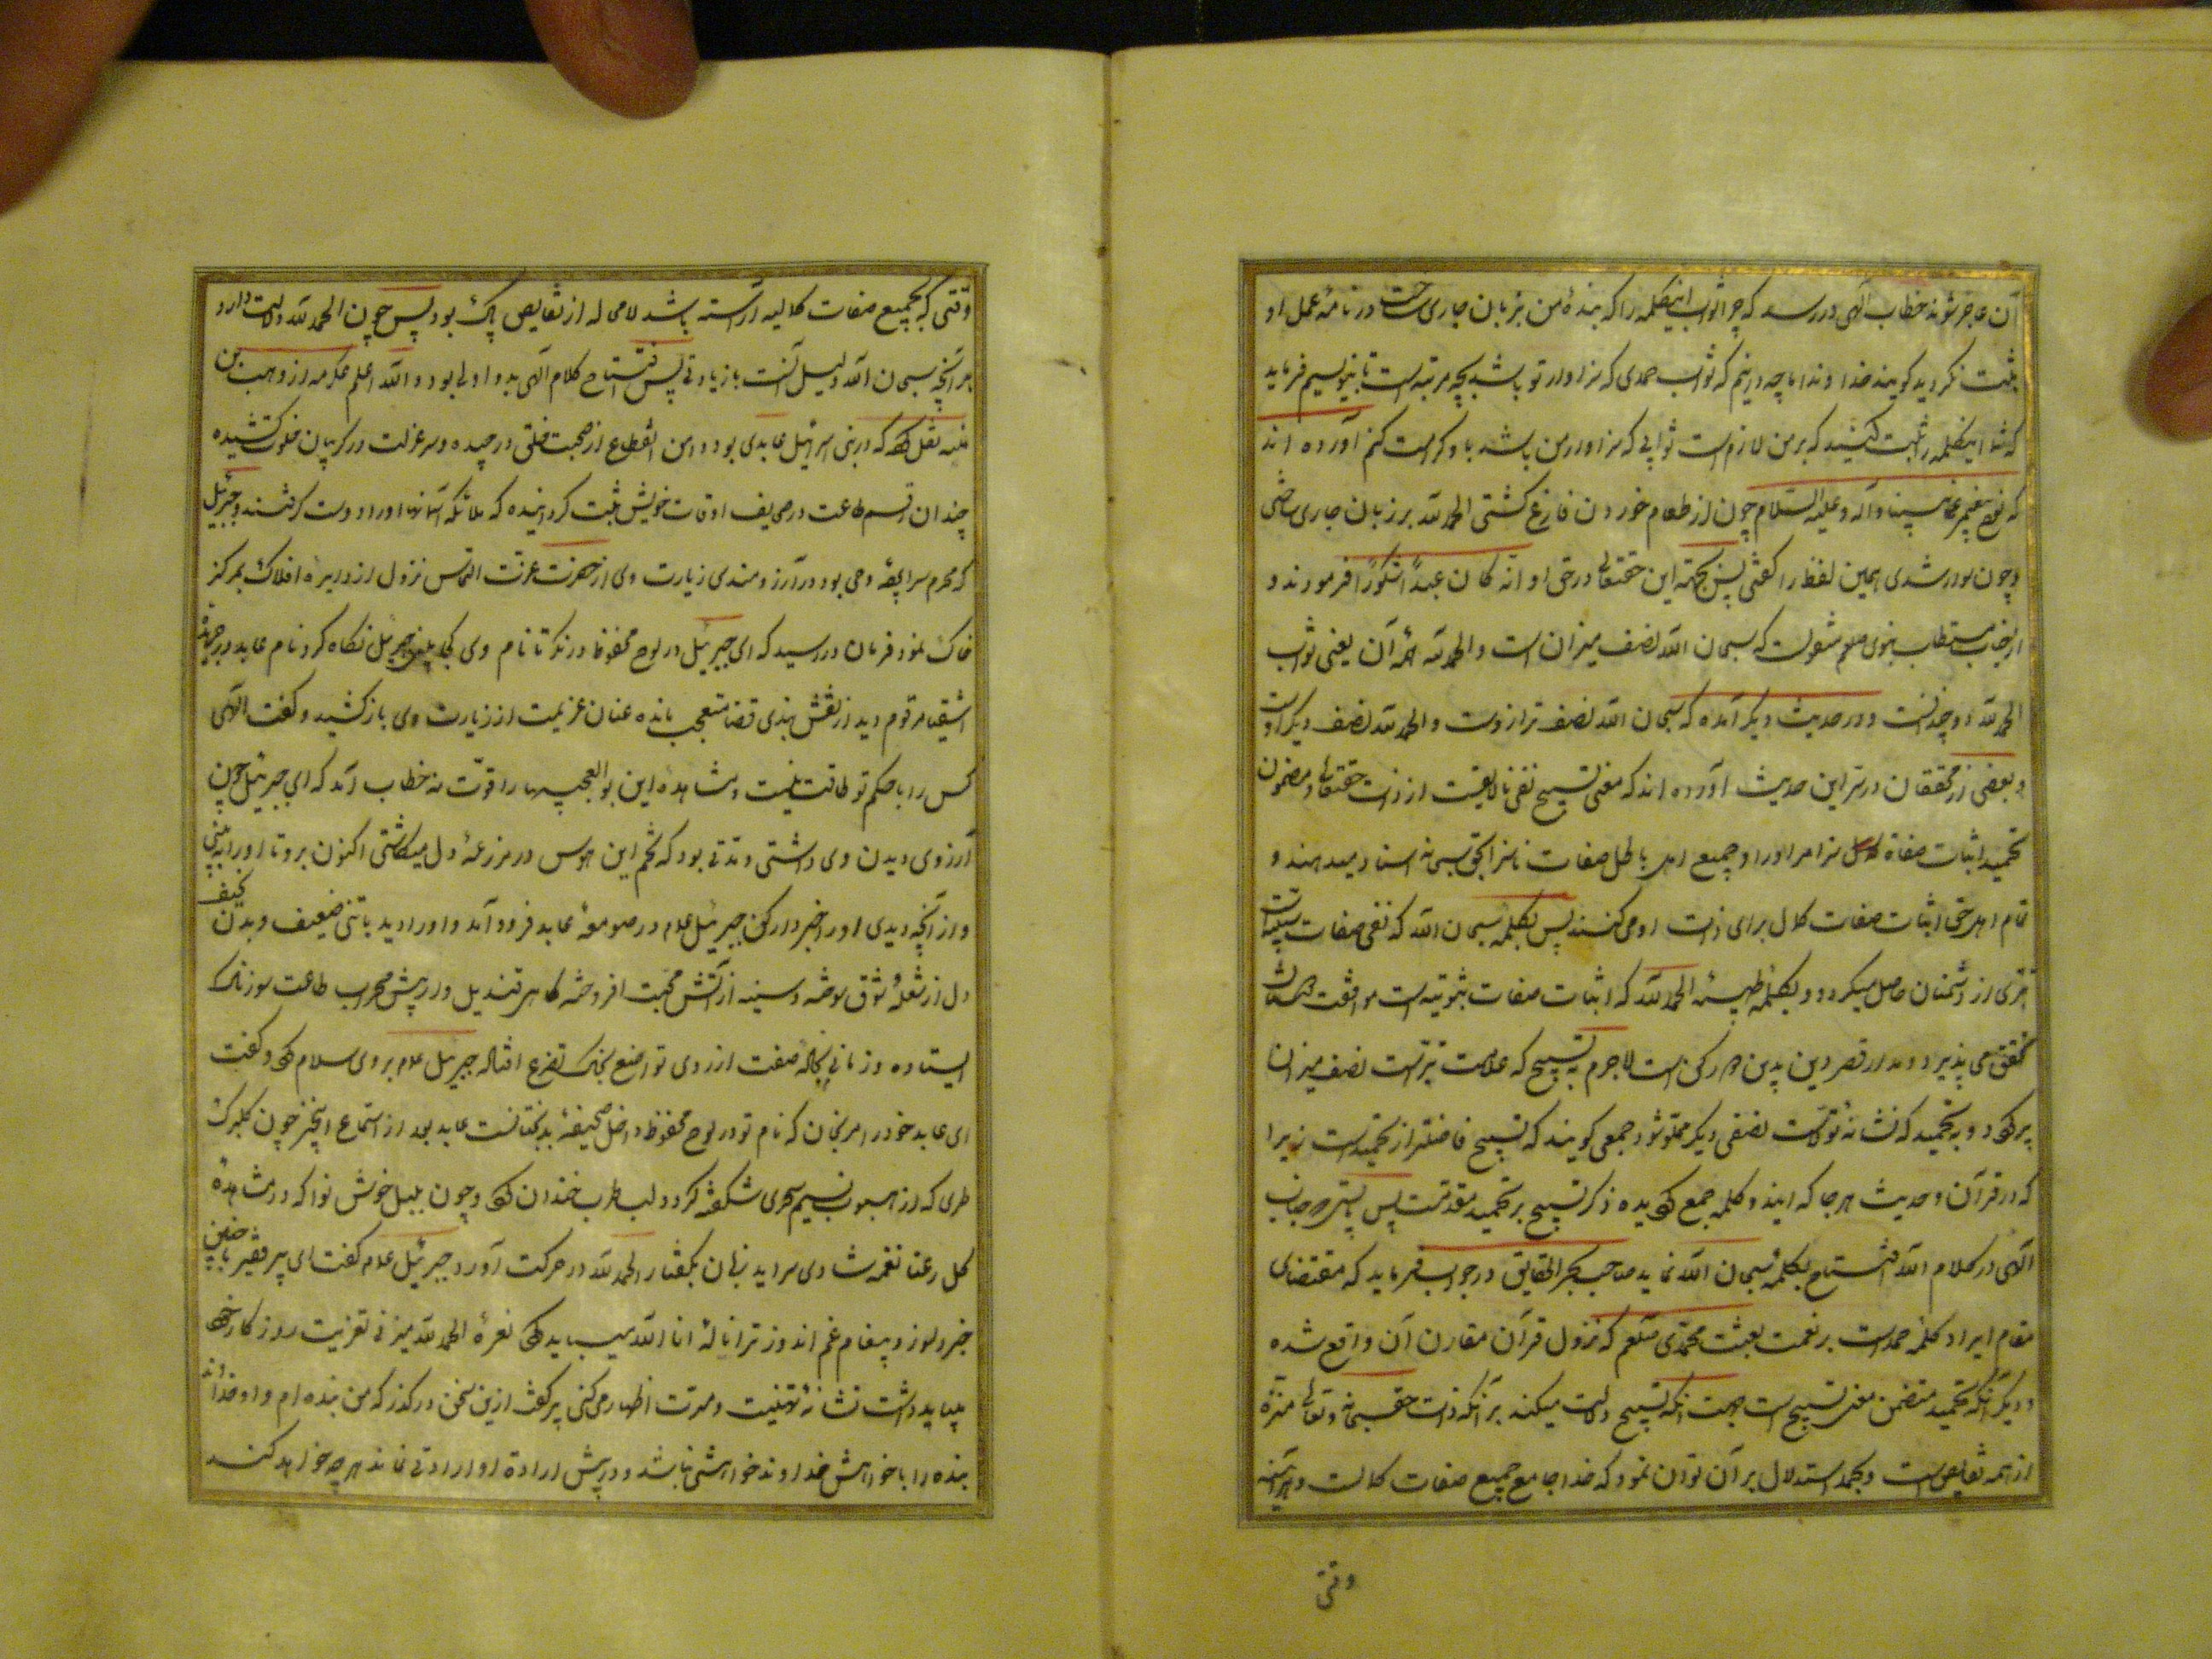 آن عاجز شوند خطاب الهی در رسد که چرا ثواب اینکلمه را که بندهٔ من بزبان جاری ساخت در نامهٔ عمل او
ثبت نکردید کویند خداوندا ما چه دانیم که ثواب حمدی که سزاوار تو باشد بچه مرتبه است تا بنویسیم فرماید
که شما اینکلمه را ثبت کنید که بر من لازم است ثوابی که سزاوار من باشد باو کرامت کنم آورده اند
که نوح پیغمبر علی نبینا وآله وعلیه السلام چون از طعام خوردن فارغ کشتی الحمد لله بر زبان جاری ساختی
و چون سوار شدی همین لفظ را کفتی پس بجهة این حقتعالی در حق او انه کان عبدا شکورا فرمودند و
از جناب مستطاب نبوی صلعم منقولست که سبحان الله نصف میزان است والحمد لله همهٔ آن یعنی ثواب
الحمد لله دو چندانست و در حدیث دیکر آمده که سبحان الله نصف ترازوست والحمد لله نصف دیکر اوست
و بعضی از محققان در سر این حدیث آورده اند که معنی تسبیح نفی نالایقیت از ذات حقتعالی و مضمون
تحمید اثبات صفاة کمال سزا مر او را و جمیع اهل باطل صفات ناسزا بحق سبحانه اسناد میدهند و
تمام اهل حق اثبات صفات کمال برای ذات او می کنند پس بکلمهٔ سبحان الله که نفی صفات سلبیه است
تبری از دشمنان حاصل میکردد و بکلمهٔ طیبهٔ الحمد لله که اثبات صفات ثبوتیه است موافقت دوستان
تحقق می پذیرد و مدار قصر دین بدین دو رکن است لاجرم به تسبیح که علامت تبراست نصف میزان
پر کردد و به تحمید که نشانهٔ تولاست نصفی دیکر مملو شود جمعی کویند که تسبیح فاضلتر از تحمیدست زیرا
که در قرآن و حدیث هرجا که ایندو کلمه جمع کردیده ذکر تسبیح بر تحمید مقدمست پس بایستی که جناب
الهی در کلام الله افتتاح بکلمهٔ سبحان الله نماید صاحب بحر الحقایق در جواب میفرماید که مقتضای
مقام ایراد کلمهٔ حمدست بر نعمت بعثت محمدی صلعم که نزول قرآن مقارن آن واقع شده
و دیکر آنکه تحمید متضمن معنی تسبیح است جهت آنکه تسبیح دلالت میکند بر آنکه ذات حق سبحانه وتعالی منزه
از همه نقایص است و بحمد استدلال بر آن توان نمود که خدا جامع جمیع صفات کمالست و هر آینه
وقتی
وقتی که بجمیع صفات کمالیه آراسته باشد لامحاله از نقایص پاک بود پس چون الحمد لله دلالت دارد
بر آنچه سبحان الله دلیل آنست با زیادتی پس افتتاح کلام الهی بدو اولی بود والله اعلم عکرمه از وهب بن
منبه نقل کرده که در بنی اسرائیل عابدی بود دامن انقطاع از صحبت خلق در چیده و سر عزلت در کریبان خلوت کشیده
چندان رقم طاعت در صحایف اوقات خویش ثبت کردانیده که ملائکه آسمانها او را دوست کرفتند و جبرئیل
که محرم سراپردهٔ وحی بود در آرزومندی زیارت وی از حضرت عزت التماس نزول از دایرهٔ افلاک بمرکز
خاک نمود فرمان در رسید که ای جبرئیل در لوح محفوظ در نکر تا نام وی کجا بینی جبرئیل نکاه کرد نام عابد در جریدهٔ
اشقیا مرقوم دید از نقش بندی قضا متعجب مانده عنان عزیمت از زیارت وی باز کشید و کفت الهی
کس را با حکم تو طاقت نیست و مشاهدهٔ این بوالعجبیها را قوت نه خطاب آمد که ای جبرئیل چون
آرزوی دیدن وی داشتی و مدتی بود که تخم این هوس در مزرعهٔ دل میکاشتی اکنون برو تا او را ببینی
و از آنچه دیدی او را خبردار کن جبرئیل علم در صومعهٔ عابد فرود آمد و او را دید با تنی ضعیف و بدن نحیف
دل از شعلهٔ شوق سوخته و سینه از آتش محبت افروخته کاهی قندیل وار پیش محراب طاعت سوزناک
ایستاده و زمانی سجاده صفت از روی تواضع بخاک تضرع افتاده جبرئیل علم بر وی سلام کرد و کفت
ای عابد خود را مرنجان که نام تو در لوح محفوظ داخل صحیفهٔ بدبختانست عابد بعد از استماع اینخبر چون کلبرک
طری که از هبوب نسیم سحری شکفته کردد لب طرب خندان کرد و چون بلبل خوش نوا که در مشاهدهٔ
کل رعنا نغمهٔ شادی سراید زبان بکفتار الحمد لله در حرکت آورد جبرئیل علم کفت ای پیر فقیر با چنین
خبر دلسوز و پیغام غم اندوز ترا نالهٔ انا لله میباید کرد نعرهٔ الحمد لله میزنی تعزیت روزکار خود
میباید داشت نشانهٔ تهنیت و مسرت اظهار می کنی پیر کفت ازین سخن در کذر که من بنده ام و او خداوند
بنده را با خواهش خداوند خواهشی نباشد و در پیش ارادة او ارادتی نماند هر چه خواهد کند